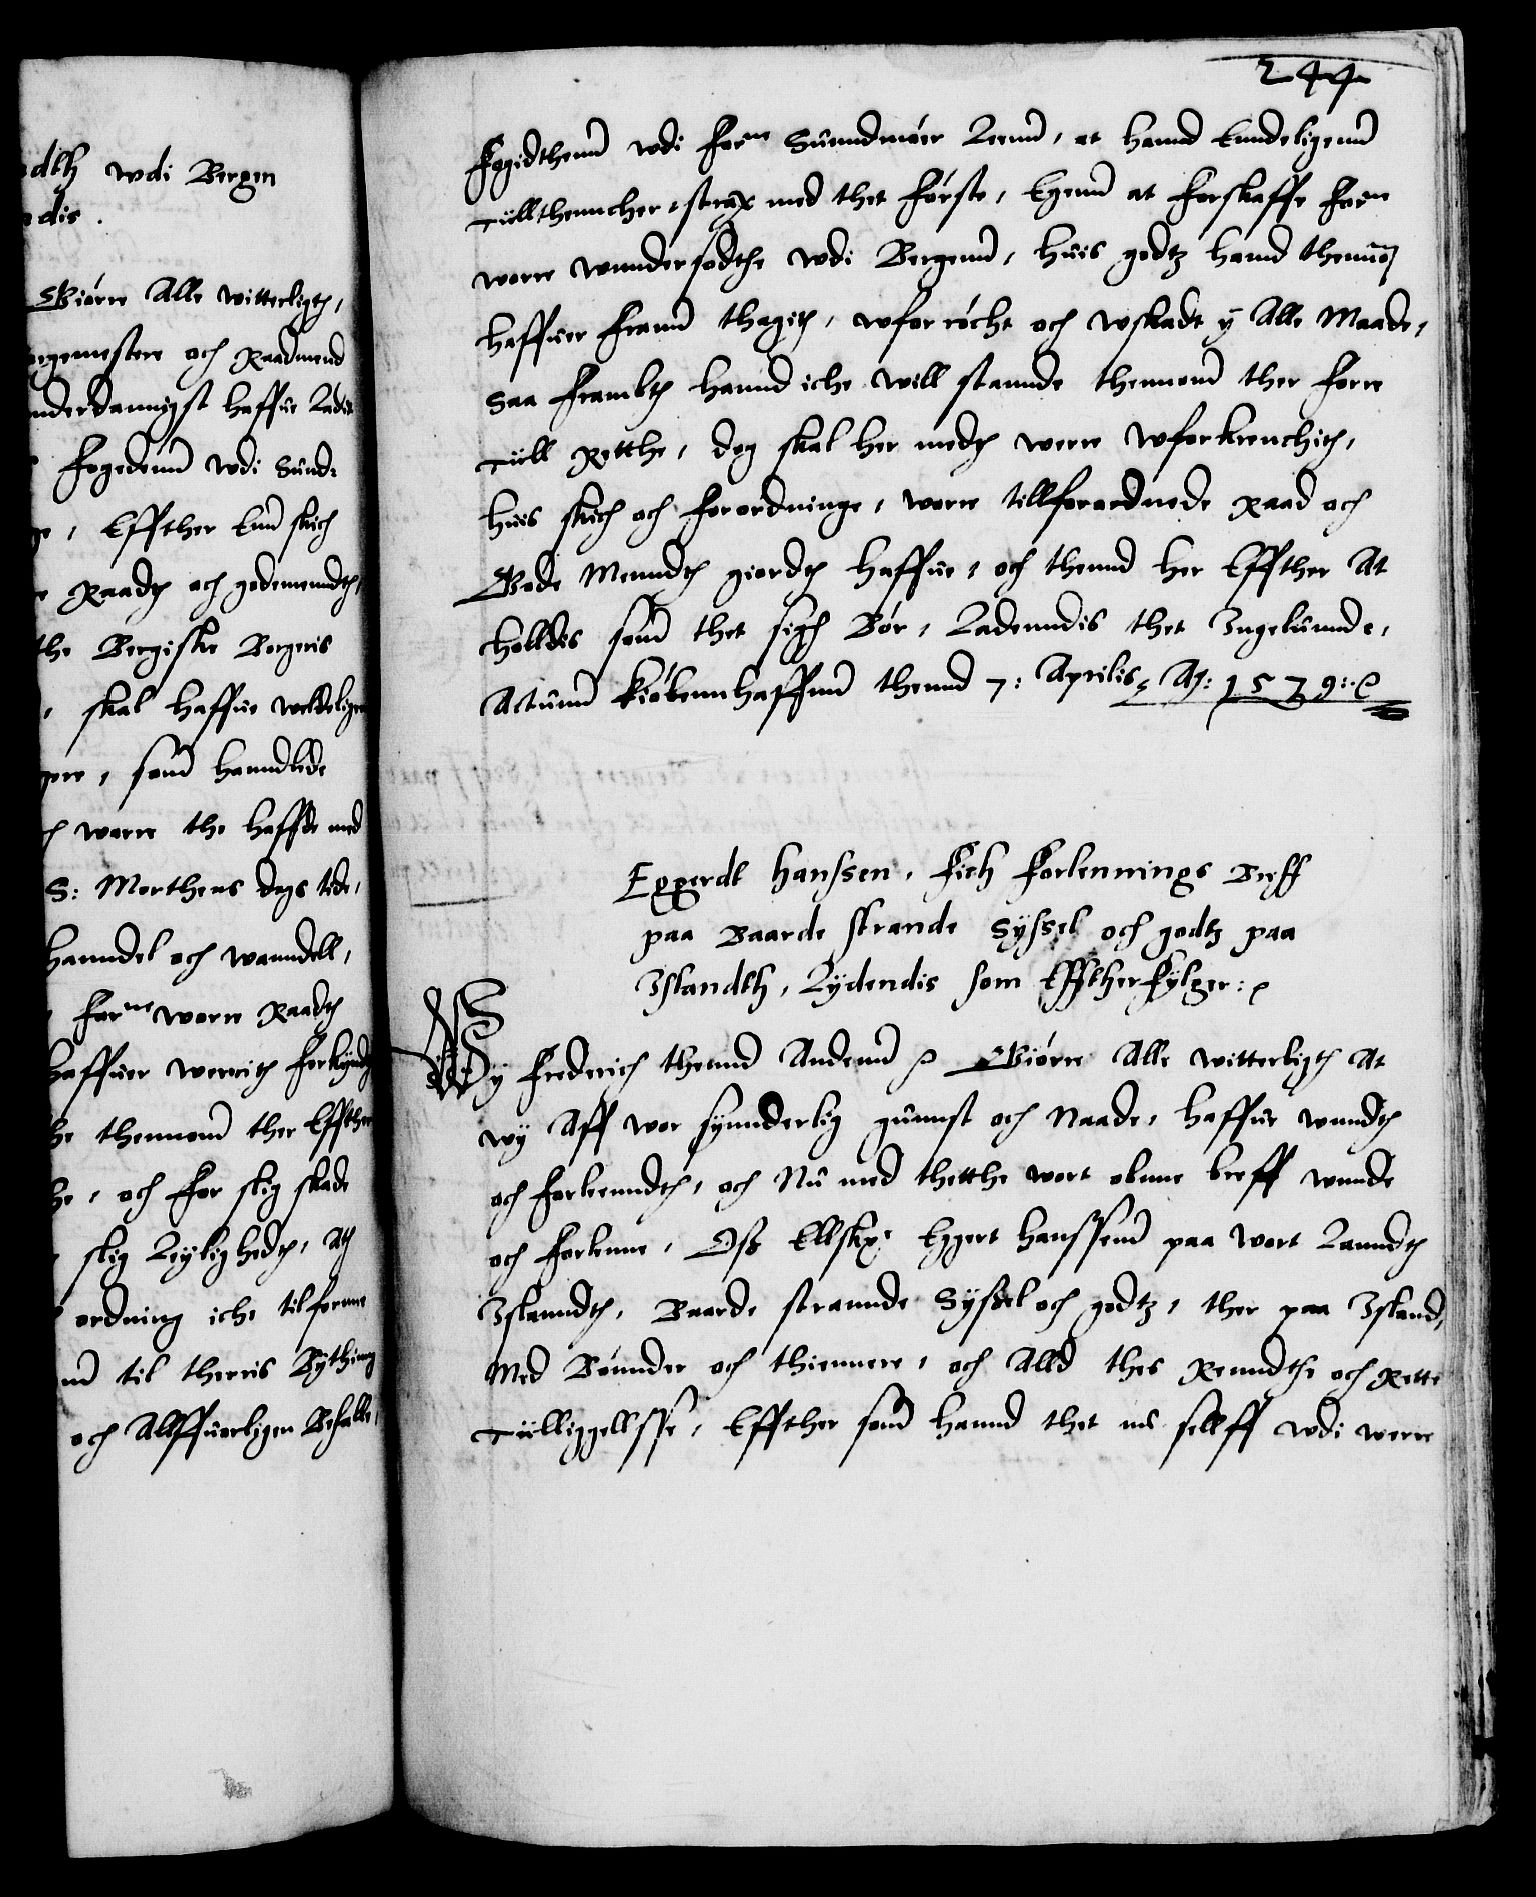 244
dth wdi Bergen
dis.
Giørre Alle witterligth,
rgemestere och Raadmend
nderdannigst haffue Ladit
Fogedenn wdi Sund-
ge, Effther Enn skick
e Raadh och godemenndh,
the Bergiske Borgeris
, skal haffue weldeligen
gere, som hanndlede
h ware the haffde med
S: Morthens dags tide,
Hanndel och wanndell,
Forne worre Raadh
haffuer werrith forkynd
he thennom ther Effther
he, och for slig skade
slig Leylighedh, Ath
ordning iche tilforne
nd til therris Bything
och Allffuorligen Befalle,
Fogidthenn wdi forne Sunndmøer Leenn, at hannd Enndeligenn
Tillthencher, strax med thet første, Egenn at forskaffe forne
worre wnndersadthe wdi Bergenn, huis godtz hannd thennom
haffuer frann thagith, wforrøcht och wskadt y Alle Maade,
Saa frambth hannd iche will stannde thennom ther forre
Till Retthe, dog skal her medh werre wforkrenchith,
huis skich och forordninge, worre tillforordnede Raad och
Gode Menndh giordh haffue, och thennd her Effther At
holldis som thet sigh Bør, Ladenndis thet Ingelunnde,
Actum Kiøbennhaffnn thennd 7: Aprilis, Aar: 1579:
Eggerdt Hanssen, Fich Forlennings Breff
paa Baarde strande Syssel och godtz paa
Islandth, Lydendis som Effther Fylger:
Wy Frederich thennd Andenn Giørre Alle witterligth At
wy Aff wor synnderlig gunnst och Naade, haffue wnndh
och forleenndth, och Nu med thetthe wort obnne breff wnnde
och forlenne, Oss Ellskl: Eggert Hanssenn paa wort Lanndth
Islanndth, Baarde strannde Syssel och godtz, ther paa Island,
Med Bønnder och thiennere, och Alld thes Renndthe och Rette
Tilliggellsse, Effther som hannd thet nu sellff wdi werre